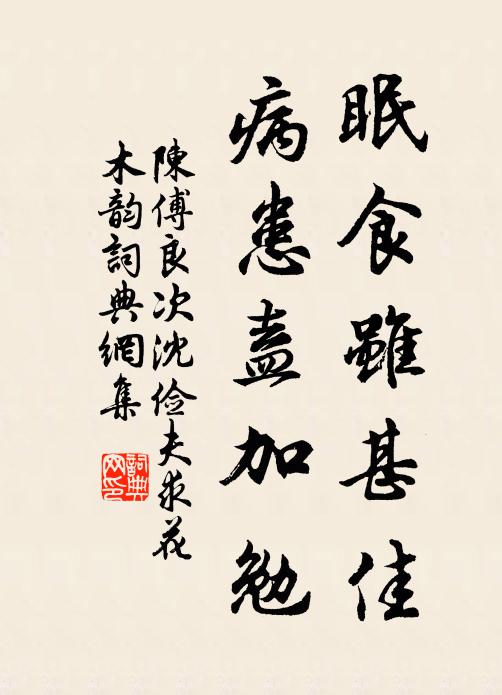 眠食雖甚佳
病患盍加勉
陳傅良次沈儉夫求花
木韵詞典網集
詞典
网印